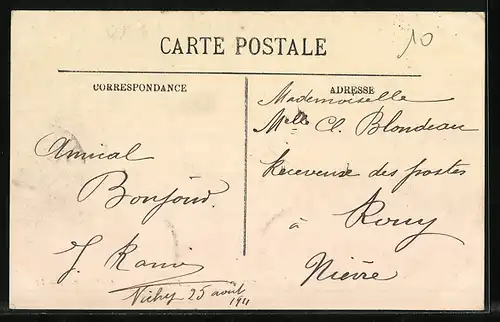 10
CARTE POSTALE
CORRESPONDANCE
Amical
Bonjour.
Vichy 25 août
1911
ADRESSE
Mademoiselle
Melle Cl. Blondeau
Receveuse des postes
à Rouy
Nièvre